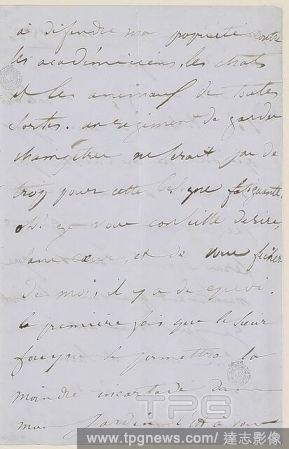 à défendre ma propriété contre
les académiciens, les chats
et les animaux de toutes
sortes. un régiment de gardes
champêtres ne serait pas de
trop pour cette besogne fatigante
oh! je vous conseille de rire,
et de vous ficher
de moi, il y a de quoi.
la première fois que le sieur
se permettra la
moindre incartade dans
mon jardin
TPG
www.tpgnews.com / 達志影像